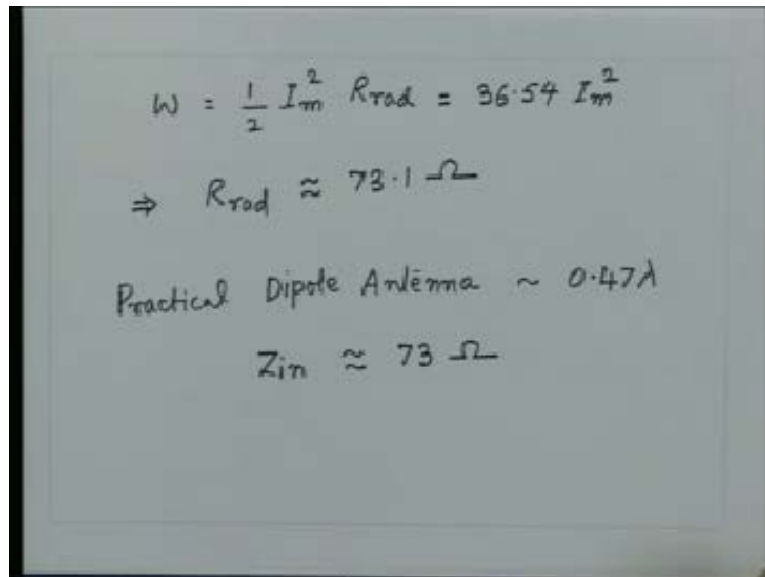 W = 1/2 I_m^2 R_rad = 36.54 I_m^2
⇒ R_rad ≈ 73.1 Ω
Practical Dipole Antenna ~ 0.47λ
Z_in ≈ 73 Ω